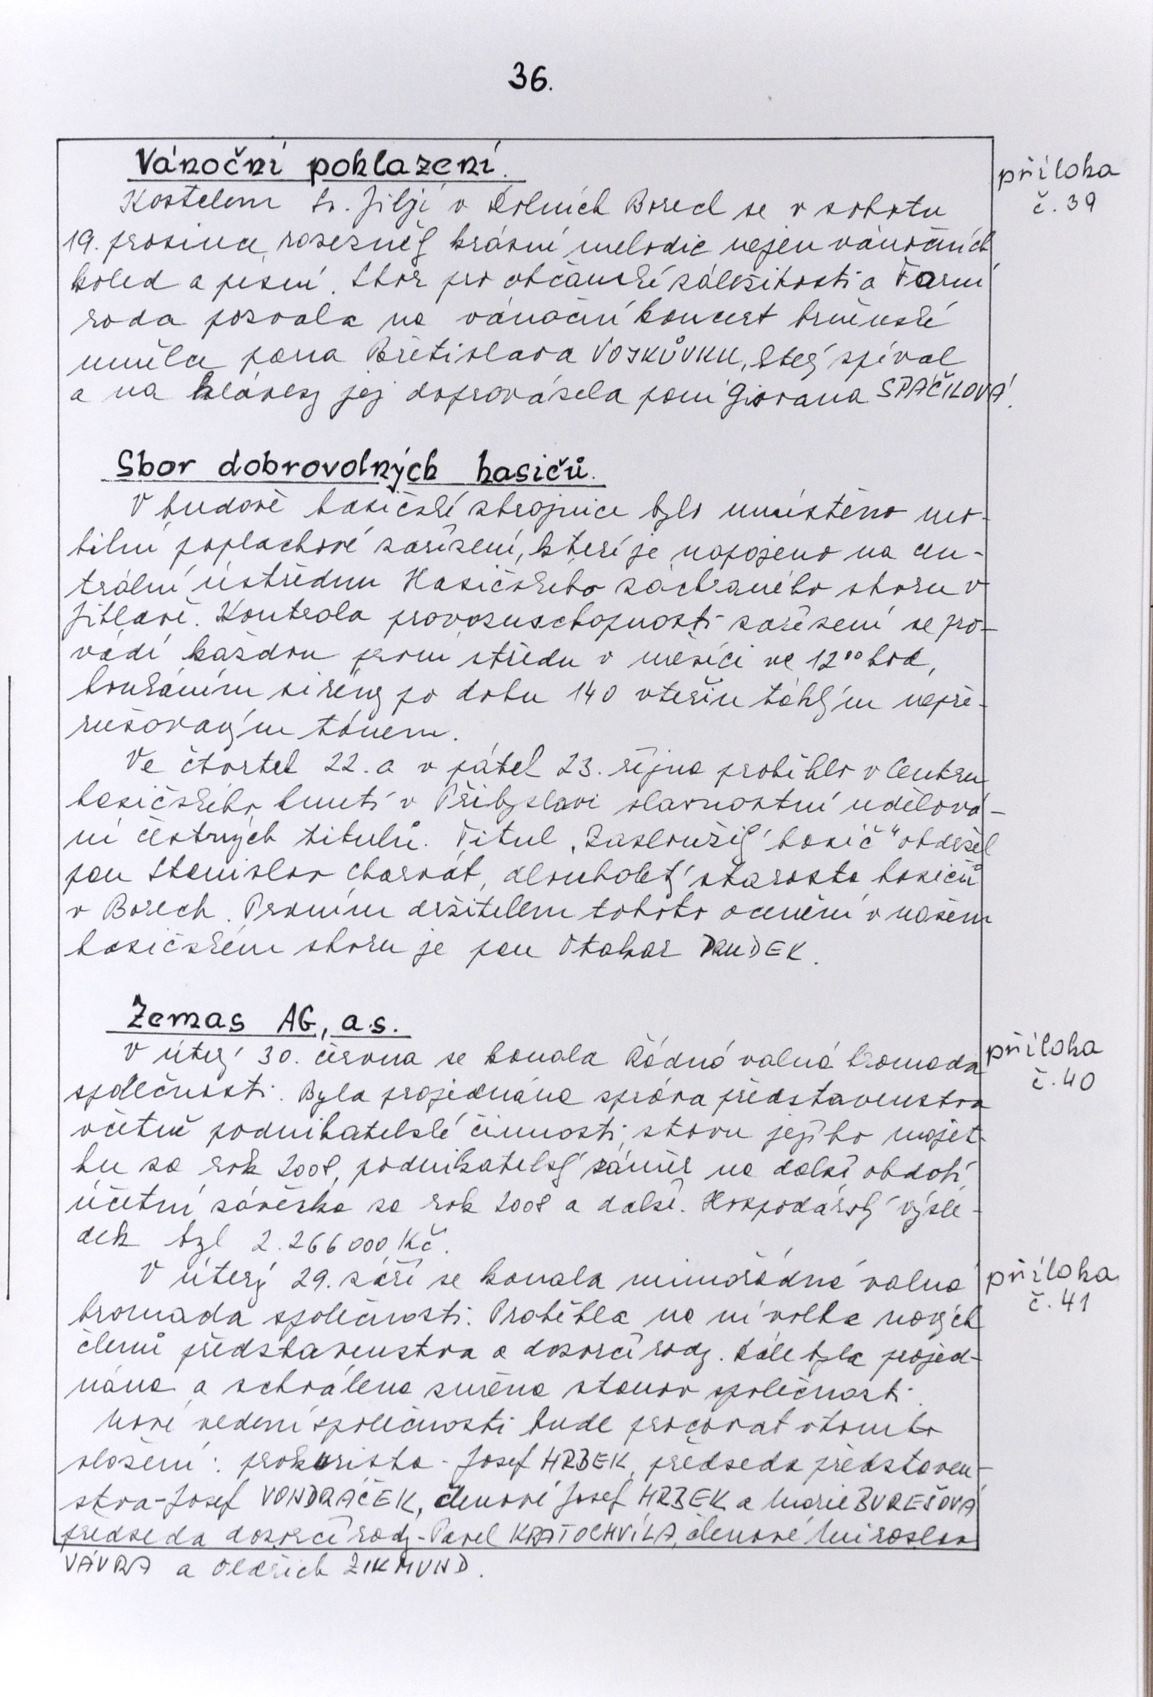 36.
Vánoční pohlazení.
příloha
č. 39
Kostelem sv. Jiljí v Dolních Borech se v sobotu
19. prosince rozezněly krásné melodie nejen vánočních
koled a písní. Sbor pro občanské záležitosti a Farní
rada pozvala na vánoční koncert brněnské
umělce pana Břetislava VOJKŮVKU, který zpíval
a na klávesy jej doprovázela paní Giovana SPÁČILOVÁ.
Sbor dobrovolných hasičů.
V budově hasičské zbrojnice bylo umístěno mo-
bilní poplachové zařízení, které je napojeno na cen-
trální ústřednu Hasičského záchraného sboru v
Jihlavě. Kontrola provozuschopnosti zařízení se pro-
vádí každou první středu v měsíci ve 12⁰⁰ hod,
houkáním sirény po dobu 140 vteřin táhlým nepře-
rušovaným tónem.
Ve čtvrtek 22. a v pátek 23. října proběhlo v Centru
hasičského hnutí v Přibyslavi slavnostní udělová-
ní čestných titulů. Titul „Zasloužilý hasič“ obdržel
pan Stanislav Charvát, dlouholetý starosta hasičů
v Borech. Prvním držitelem tohoto ocenění v našem
hasičském sboru je pan Otakar DUDEK.
Zemas AG, a.s.
příloha
č. 40
V úterý 30. června se konala Řádná valná hromada
společnosti. Byla projednána zpráva představenstva
včetně podnikatelské činnosti, stavu jejího majet-
ku za rok 2008, podnikatelský záměr na další období,
účetní závěrka za rok 2008 a další. Hospodářský výsle-
dek byl 2.266 000 Kč.
příloha
č. 41
V úterý 29. září se konala mimořádná valná
hromada společnosti. Proběhla na ní volba nových
členů představenstva a dozorčí rady. Dále byla projed-
nána a schválena změna stanov společnosti.
Nové vedení společnosti bude pracovat v tomto
složení: prokurista - Josef HRBEK, předseda představen-
stva - Josef VONDRÁČEK, členové Josef HRBEK a Marie BUREŠOVÁ
předseda dozorčí rady - Pavel KRATOCHVÍLA, členové Miroslav
VÁVRA a Oldřich ZIKMUND.